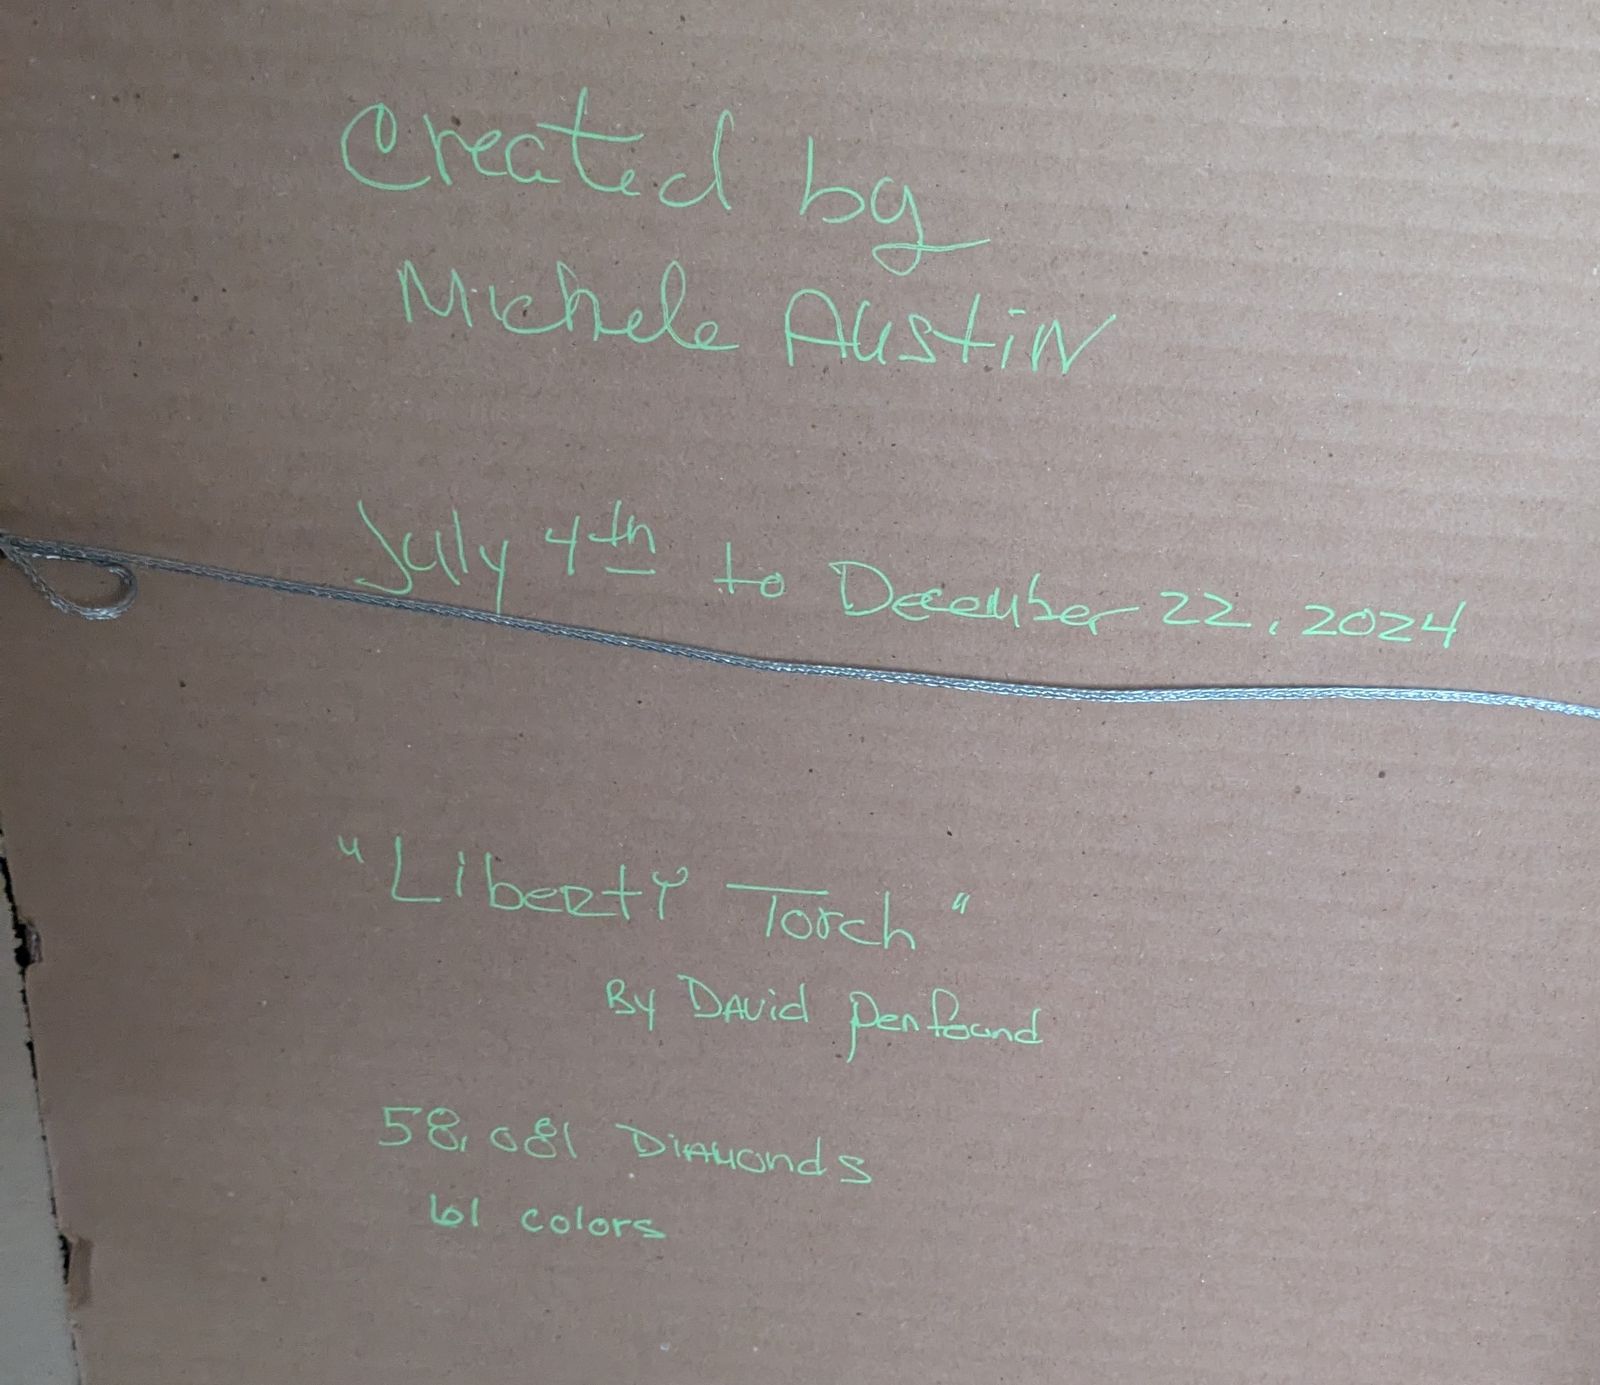 Created by
Michele Austin
July 4th to December 22, 2024
"Liberty Torch"
By David Penfound
58,081 Diamonds
61 colors